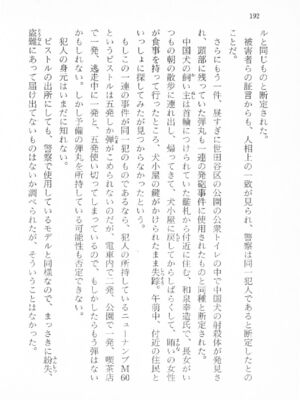 192
ルと同じものと断定された。
被害者らの証言からも、人相上の一致が見られ、警察は同一犯人であると断定したとの
ことだ。
さらにもう一件、昼すぎに世田谷区の公園の公衆トイレの中で中国犬の射殺体が発見さ
れ、頭部に残っていた弾丸も一連の発砲事件に使用されたものと同種と断定された。
中国犬の飼い主は首輪につけられていた鑑札から付近に住む、和泉幸造氏で、長女がい
つもの朝の散歩に連れ出し、帰ってきて、犬小屋に戻してからしばらくして、賄いの女性
が食事を持って行ったところ、犬小屋の鍵がかけられたまま失踪。午前中、付近の住民と
いっしょに探してみたが見つからなかったという。
もしこの一連の事件が同一犯のものであるなら、犯人の所持しているニューナンブM60
というピストルは五発しか弾がこめられないのだが、電車内で一発、公園で一発、喫茶店
で一発、逃走中に一発と、五発使い切ってしまっているので、もしかしたらもう弾はない
かもしれない。しかし予備の弾丸を所持している可能性も否定できない。
犯人の身元はいまだに知れない。
ピストルの出所にしても、警察で使用しているモデルと同様なので、まっさきに紛失、
盗難にあって届け出てないものはないか調べられたが、そういうことはなかった。